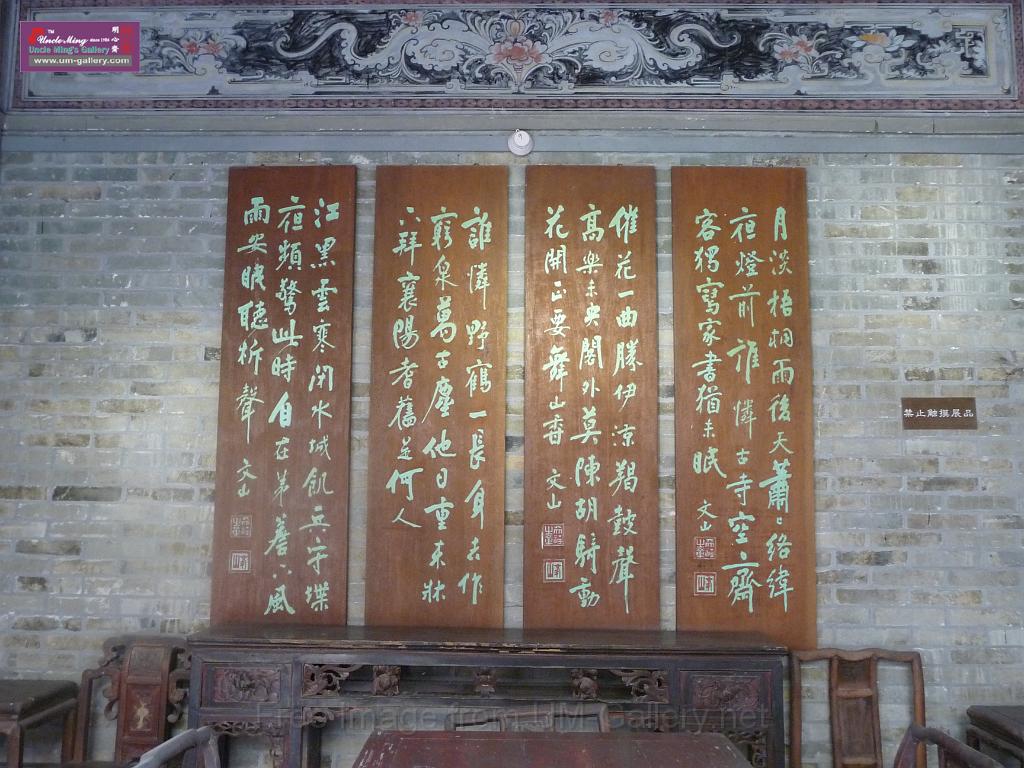 TM
Uncle Ming since 1984
Uncle Ming's Gallery
明心齋
www.um-gallery.com
月淡梧桐雨後天蕭〻絡緯
夜燈前誰憐古寺空齋
客獨寫家書猶未眠 文山
催花一曲勝伊涼羯鼓聲
高樂未央閣外莫陳胡騎動
花開正要舞山香 文山
誰憐野鶴一長身去作
窮泉萬古塵他日重來牀
下拜襄陽耆舊是何人
江黑雲寒閉水城飢兵守堞
夜頻驚此時自在茅簷下風
雨安眠聽柝聲 文山
禁止触摸展品
Free image from UM-Gallery.net